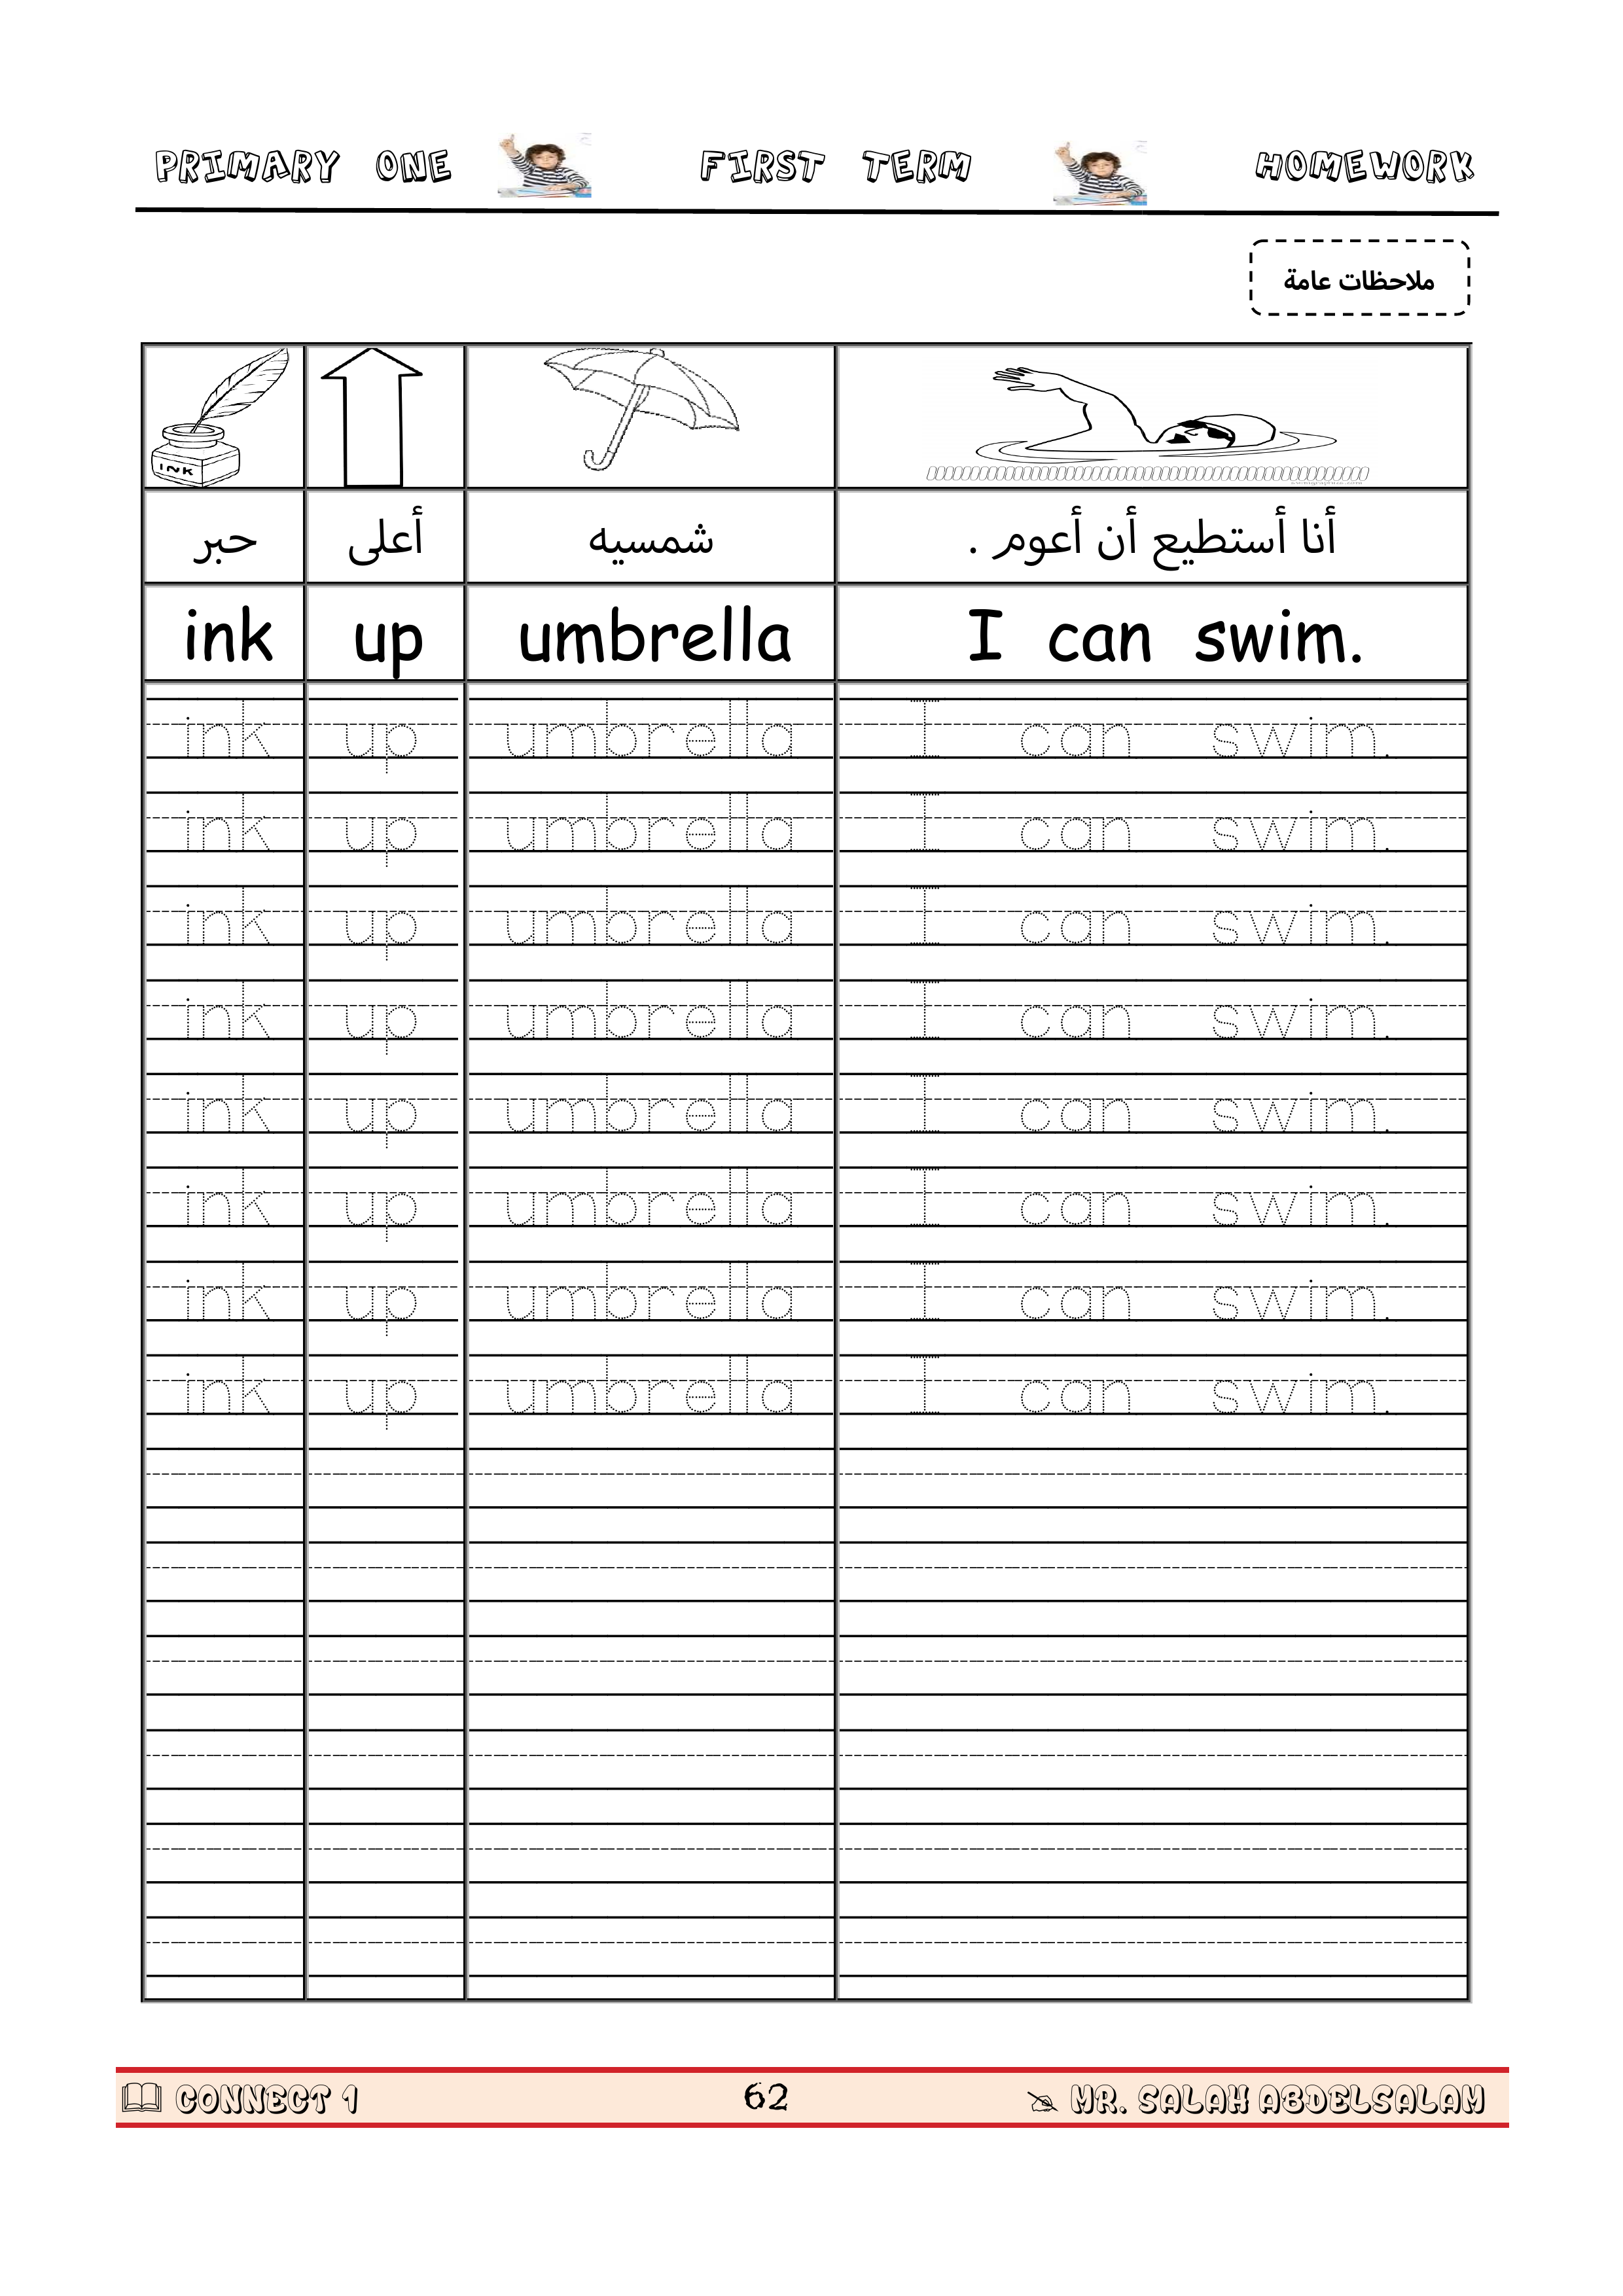 PRIMARY ONE FIRST TERM HOMEWORK
ملاحظات عامة
INK
حبر أعلى شمسيه أنا أستطيع أن أعوم .
ink up umbrella I can swim.
ink up umbrella I can swim.
ink up umbrella I can swim.
ink up umbrella I can swim.
ink up umbrella I can swim.
ink up umbrella I can swim.
ink up umbrella I can swim.
ink up umbrella I can swim.
ink up umbrella I can swim.
CONNECT 1 62 MR. SALAH ABDELSALAM